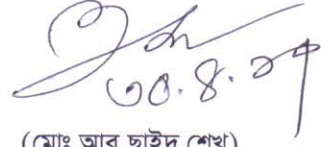 ৩০.৪.১৭
(মোঃ আবু ছাইদ শেখ)